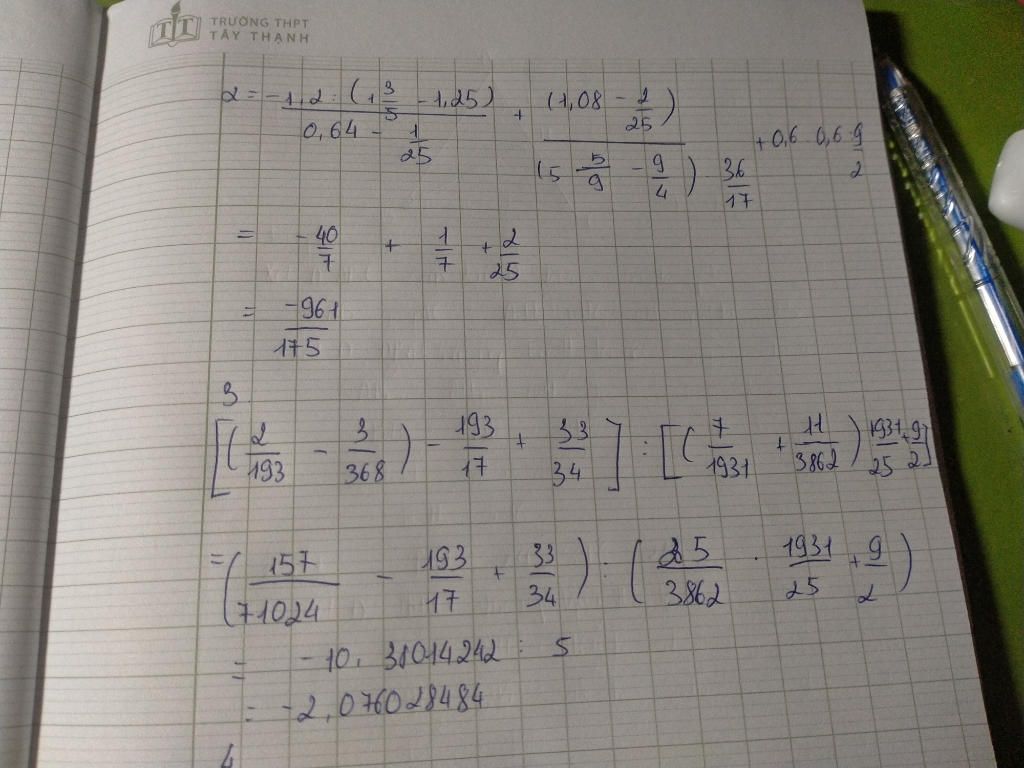 TRƯỜNG THPT
TÂY THẠNH
2 = -1,2 : (1 3/5 - 1,25) / 0,64 - 1/25 + (1,08 - 2/25) / (5 5/9 - 9/4) . 36/17 + 0,6 . 0,6 . 9/2
= -40/7 + 1/7 + 2/25
= -961/175
3
[(2/193 - 3/368) - 193/17 + 33/34] : [(7/1931 + 11/3862) 1931/25 + 9/2]
= (157/71024 - 193/17 + 33/34) : (25/3862 . 1931/25 + 9/2)
= -10,31014242 : 5
= -2,076028484
4